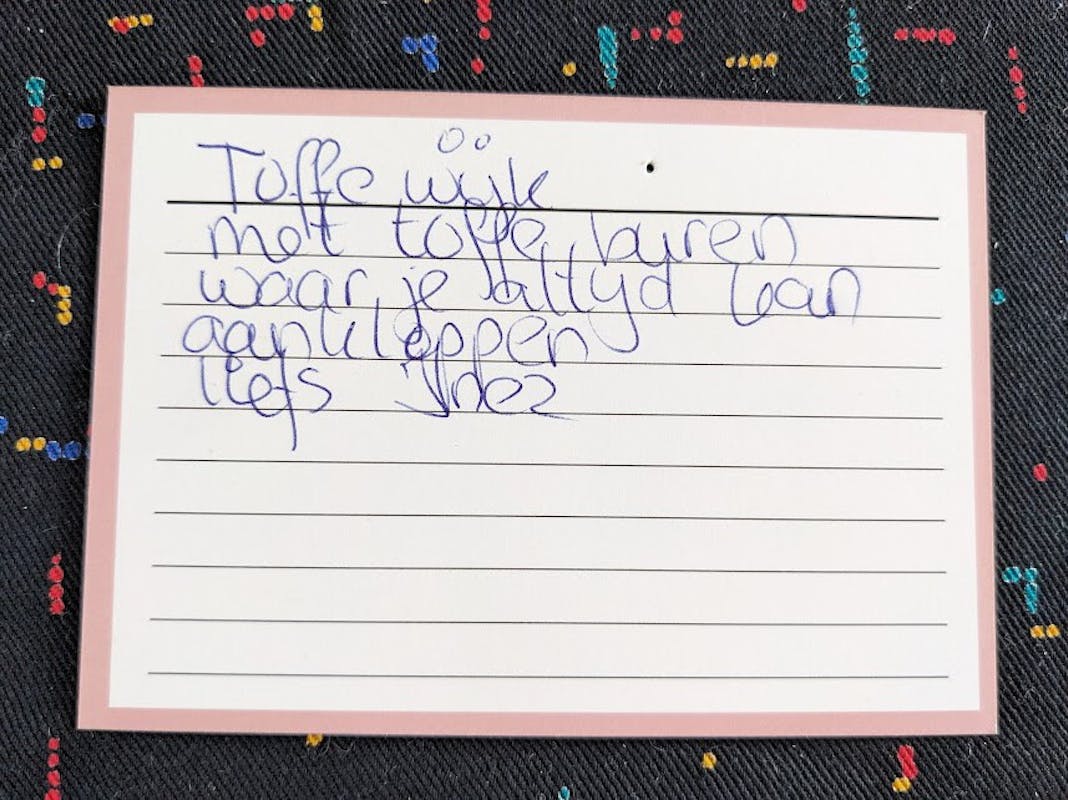 Toffe wijk
met toffe buren
waar je altyd kan
aankloppen
liefs Ynez